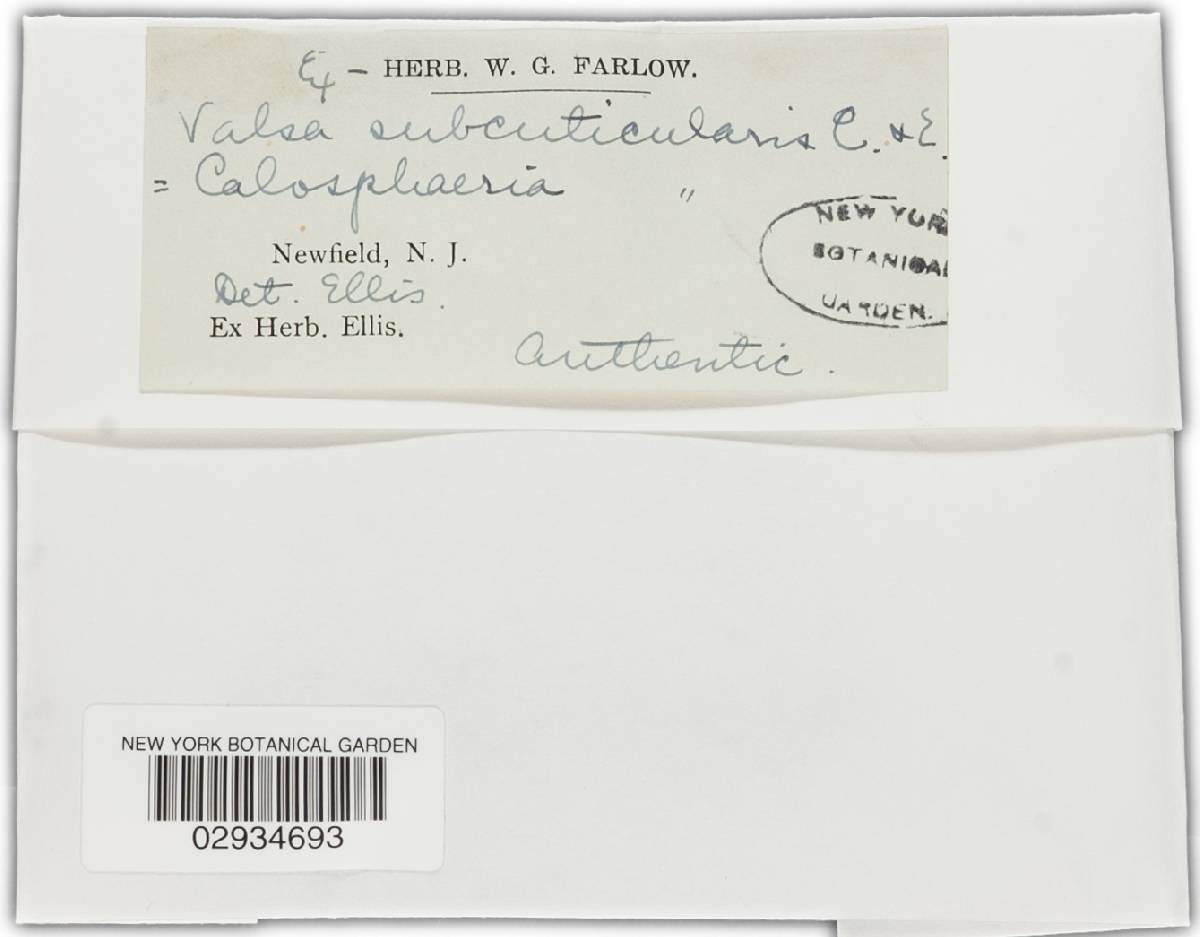 Ex - HERB. W. G. FARLOW.
Valsa subcuticularis C. & E.
= Calosphaeria "
NEW YOR
BOTANICAL
GARDEN.
Newfield, N. J.
Det. Ellis.
Ex Herb. Ellis.
Authentic.
NEW YORK BOTANICAL GARDEN
02934693